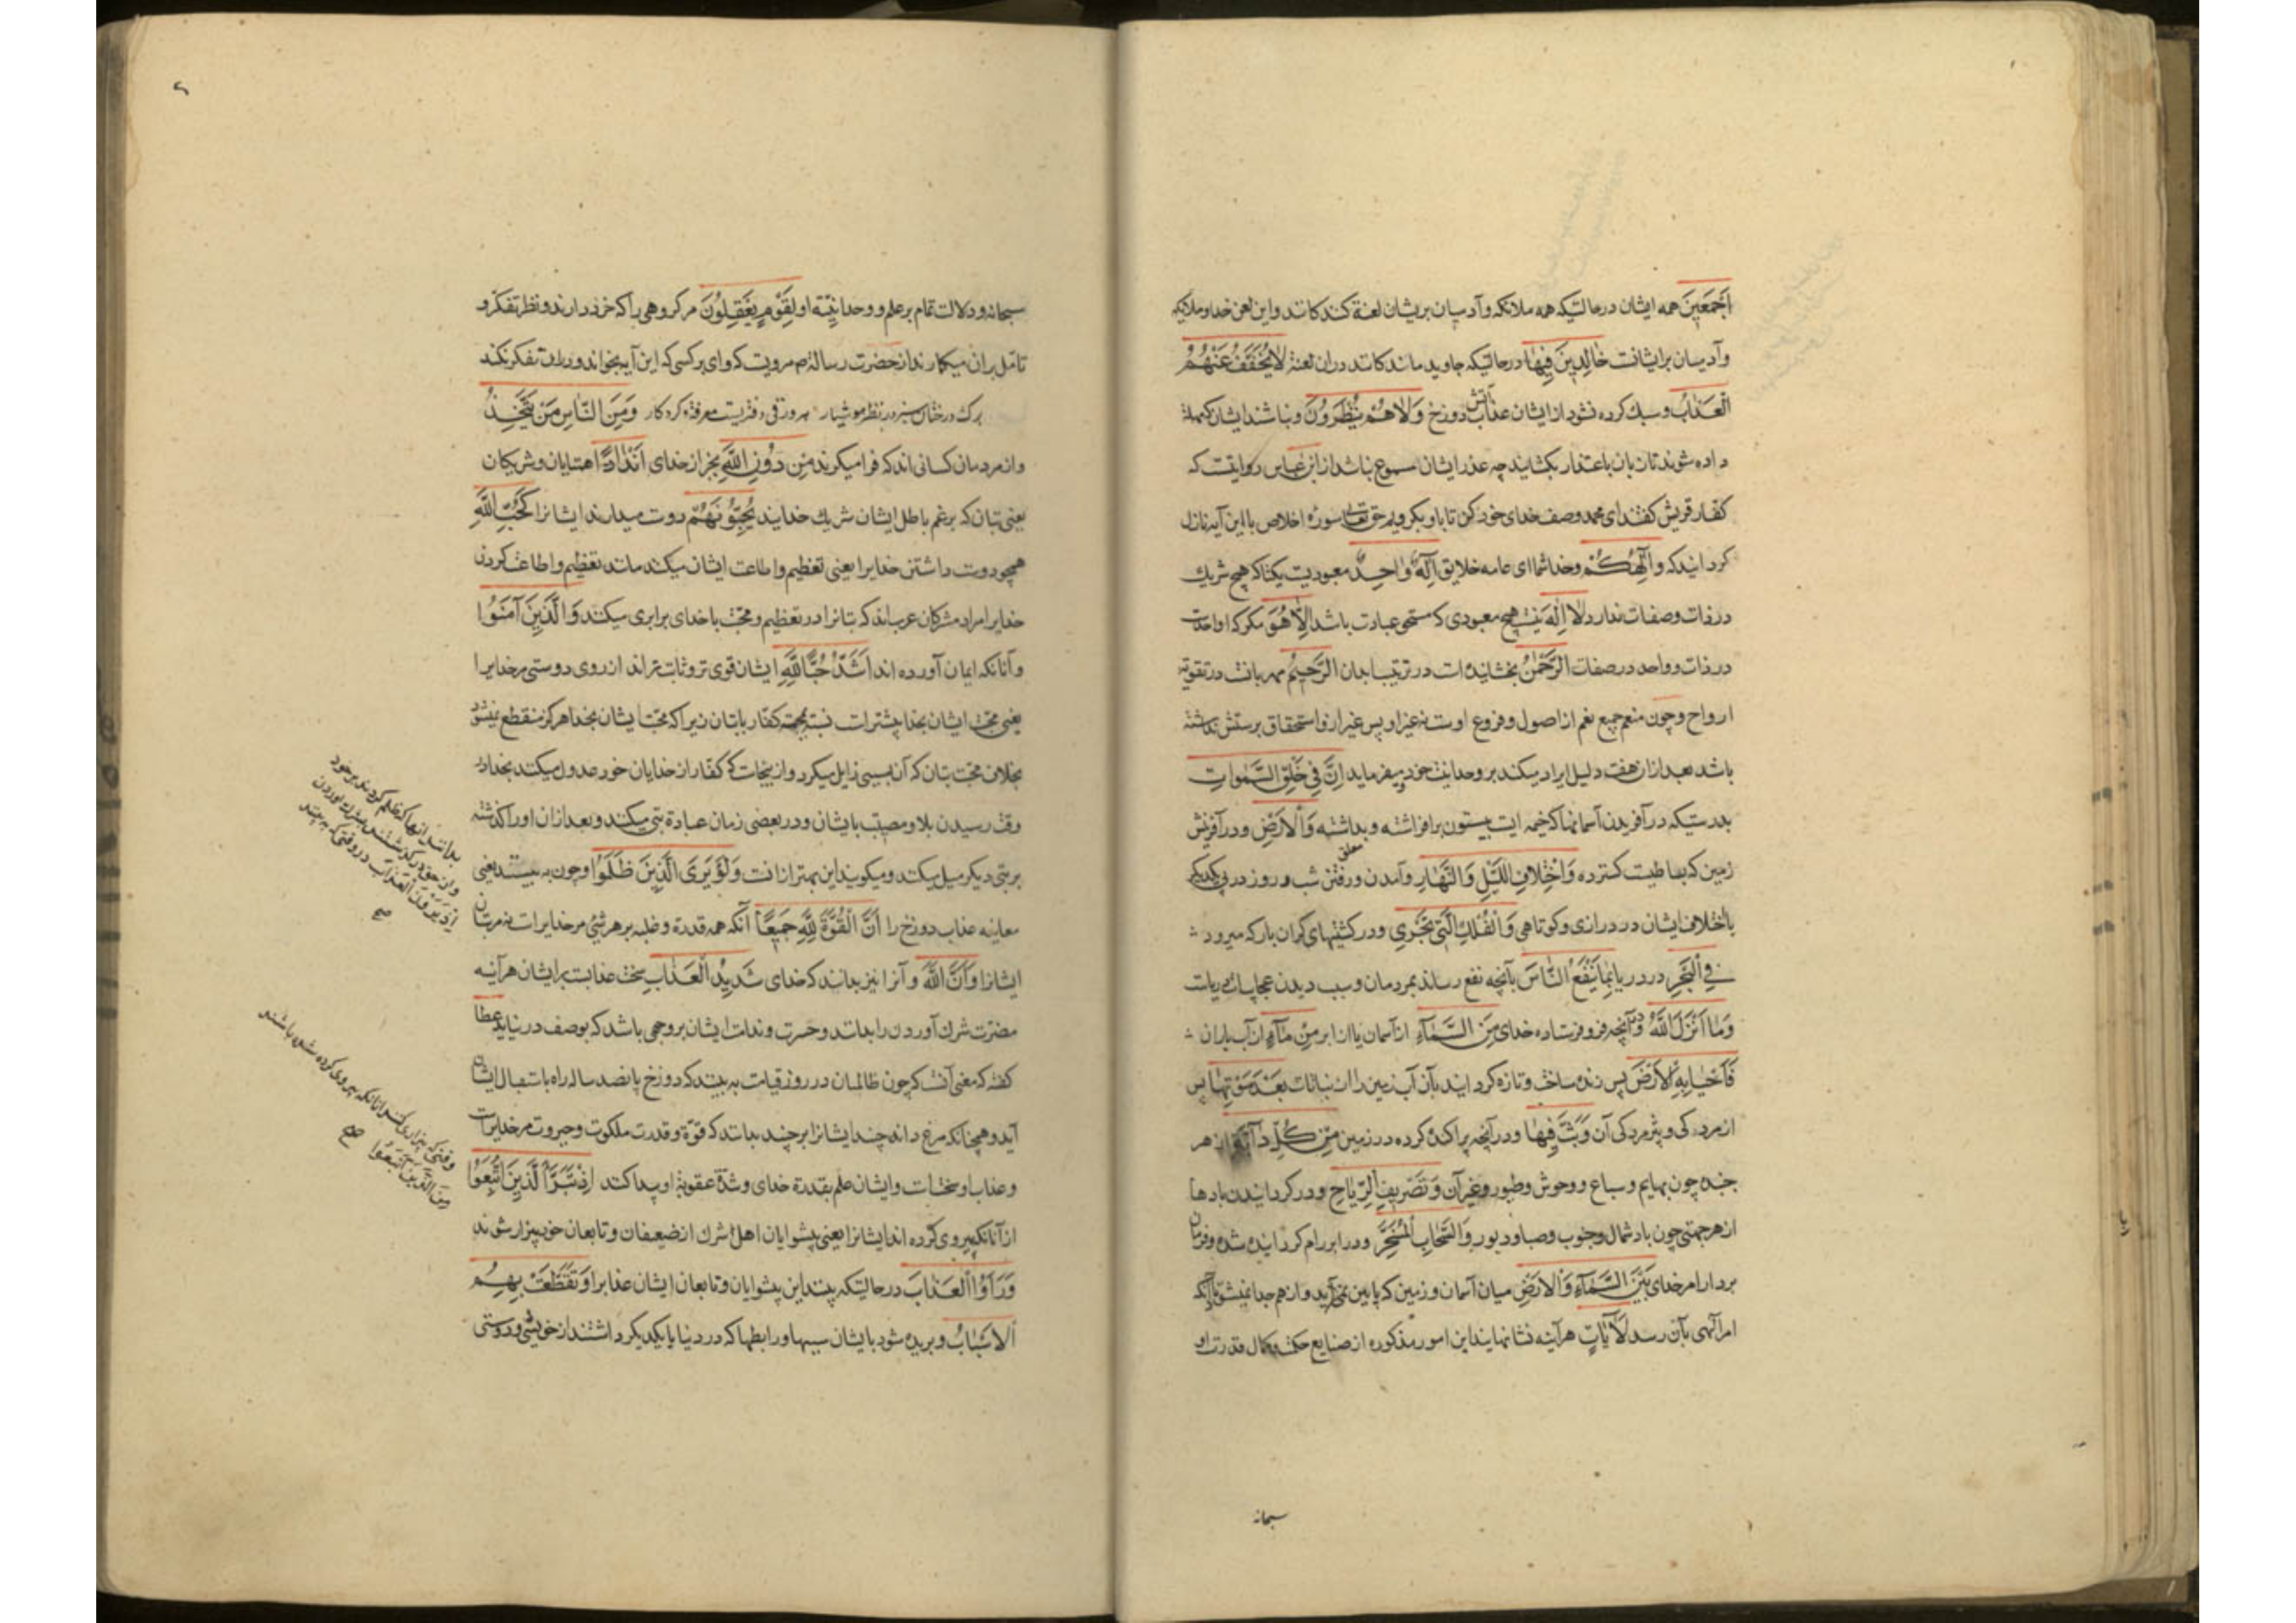 اَجْمَعِينَ همه ایشان درحالتیکه همه ملائکه وآدمیان بریشان لعنة کنندکانند واین لعن خدا وملائیکه
وآدمیان برایشانست خَالِدِينَ فِيهَا درحالتیکه جاوید مانندکانند دران لعنة لَا يُخَفَّفُ عَنْهُمُ
الْعَذَابُ وسبك کرده نشود از ایشان عذاب آتش دوزخ وَلَا هُمْ يُنْظَرُونَ ونباشند ایشان که مهلت
داده شوند تا زبان باعتذار بکشایند چه عذر ایشان مسموع نباشد از ابن عباس روایتست که
کفار قریش کفتند ای محمد وصف خدای خود کن تا باو بکرویم حق تعالی سوره اخلاص با این آیه نازل
کردانید که وَاِلٰهُكُمْ وخدا شما ای عامه خلایق اِلٰهٌ وَاحِدٌ معبودیست یکتا که هیچ شریك
در ذات وصفات ندارد لَا اِلٰهَ نیست هیچ معبودی که مستحق عبادت باشد اِلَّا هُوَ مکر که او احدست
در ذات وواحد در صفات الرَّحْمٰنُ بخشاینده است در ترتیب ابدان الرَّحِيمُ مهربانست در تقویه
ارواح وچون منعم جمیع نعم از اصول وفروع اوست نه غیر او پس غیر او استحقاق پرستش نداشته
باشد بعد ازان هفت دلیل ایراد میکند بر وحدانیت خود ومیفرماید اِنَّ فِي خَلْقِ السَّمٰوَاتِ
بدرستیکه در آفریدن آسمانها که خیمه ایست بیستون برافراشته وبداشته وَالْاَرْضِ ودر آفرینش
زمین که بساطیست کسترده وَاخْتِلَافِ اللَّيْلِ وَالنَّهَارِ وآمدن ورفتن شب وروز در پی یکدیکر
باختلاف ایشان در درازی وکوتاهی وَالْفُلْكِ الَّتِي تَجْرِي ودر کشتیهای کران بار که میرود
فِي الْبَحْرِ در دریا بِمَا يَنْفَعُ النَّاسَ بآنچه نفع رساند بمردمان وسبب دیدن عجایبات دریاست
وَمَا اَنْزَلَ اللّٰهُ ودر آنچه فرو فرستاده خدای مِنَ السَّمَاءِ از آسمان یا از ابر مِنْ مَاءٍ از آب باران
فَاَحْيَا بِهِ الْاَرْضَ پس زنده ساخت وتازه کردانید بآن آب زمین را از نباتات بَعْدَ مَوْتِهَا پس
از مردکی وپژمردکی آن وَبَثَّ فِيهَا ودر آنچه پراکنده کرده در زمین مِنْ كُلِّ دَابَّةٍ از هر
جنبنده چون بهایم وسباع ووحوش وطیور وغیر آن وَتَصْرِيفِ الرِّيَاحِ ودر کردانیدن بادها
از هر جهتی چون باد شمال وجنوب وصبا ودبور وَالسَّحَابِ الْمُسَخَّرِ ودر ابر رام کردانیده شده وفرمان
بردار امر خدای بَيْنَ السَّمَاءِ وَالْاَرْضِ میان آسمان وزمین که پایین نمی آید واز هم جدا نمیشود تا آنکه
امر الهی بآن رسد لَاٰيَاتٍ هرآینه نشانهایند این امور مذکوره از صنایع حکمت وکمال قدرت او
سبحانه
سبحانه ودلالت تمام بر علم ووحدانیّة او لِقَوْمٍ يَعْقِلُونَ مر کروهی را که خرد دارند ونظر تفکر و
تامّل بران میکمارند از حضرت رسالة ص مرویست که وای بر کسی که این آیه بخواند ودران تفکر نکند
برك درختان سبز در نظر هوشیار هر ورقی دفتریست معرفة کردکار وَمِنَ النَّاسِ مَنْ يَتَّخِذُ
واز مردمان کسانی اند که فرا میکیرند مِنْ دُونِ اللّٰهِ بجز از خدای اَنْدَادًا همتایان وشریکان
یعنی بتان که بزعم باطل ایشان شریك خدایند يُحِبُّونَهُمْ دوست میدارند ایشانرا كَحُبِّ اللّٰهِ
همچو دوست داشتن خدایرا یعنی تعظیم واطاعت ایشان میکند مانند تعظیم واطاعت کردن
خدایرا مراد مشرکان عرب اند که بتانرا در تعظیم ومحبّت با خدای برابری میکنند وَالَّذِينَ اٰمَنُوا
وآنانکه ایمان آورده اند اَشَدُّ حُبًّا لِلّٰهِ ایشان قوی تر وثابت تر اند از روی دوستی مر خدایرا
یعنی محبّت ایشان بخدا بیشترست نسبة بمحبّة کفّار با بتان زیرا که محبّت ایشان بخدا هرکز منقطع نمیشود
بخلاف محبّت بتان که آن بسببی زایل میکردد وازینجاست که کفّار از خدایان خود عدول میکنند بخدا در
وقت رسیدن بلا ومصیبت بایشان ودر بعضی زمان عبادة بتی میکند وبعد ازان اورا کذشته
بر بتی دیکر میل میکنند ومیکویند این بهتر از انست وَلَوْ يَرَى الَّذِينَ ظَلَمُوا وچون به بینند یعنی
معاینه عذاب دوزخ را اَنَّ الْقُوَّةَ لِلّٰهِ جَمِيعًا آنکه همه قدرة وغلبه بر هر شئ مر خدایراست نه مر بتان
ایشانرا وَاَنَّ اللّٰهَ وآنرا نیز بدانند که خدای شَدِيدُ الْعَذَابِ سخت عذابست بر ایشان هرآینه
مضرّت شرك آوردن را بدانند وحسرت وندامت ایشان بر وجهی باشد که بوصف در نیاید عطا
کفته که معنی آنست که چون ظالمان در روز قیامت به بینند که دوزخ پانصد ساله راه باستقبال ایشان
آید وهمچنانکه مرغ دانه چند ایشانرا برچیند بدانند که قوّة وقدرت ملکوت وجبروت مر خدایراست
وعذاب او سختست وایشان علم بقدرة خدای وشدّة عقوبة او پیدا کنند اِذْ تَبَرَّاَ الَّذِينَ اتُّبِعُوا
از آنانکه پیروی کرده اند ایشانرا یعنی پیشوایان اهل شرك از ضعیفان وتابعان خود بیزار شوند
وَرَاَوُا الْعَذَابَ درحالتیکه بینند این پیشوایان وتابعان ایشان عذابرا وَتَقَطَّعَتْ بِهِمُ
الْاَسْبَابُ وبریده شود بایشان سببها ورابطها که در دنیا با یکدیکر داشتند از خویشی ودوستی
بدانند آنها که ظلم کردند بر خود
اِذْ يَرَوْنَ الْعَذَابَ دروقتی که به بینند
صح
وقتی که بیزاری کنند آنانکه پیروی کرده شده باشند
مِنَ الَّذِينَ اتَّبَعُوا صح